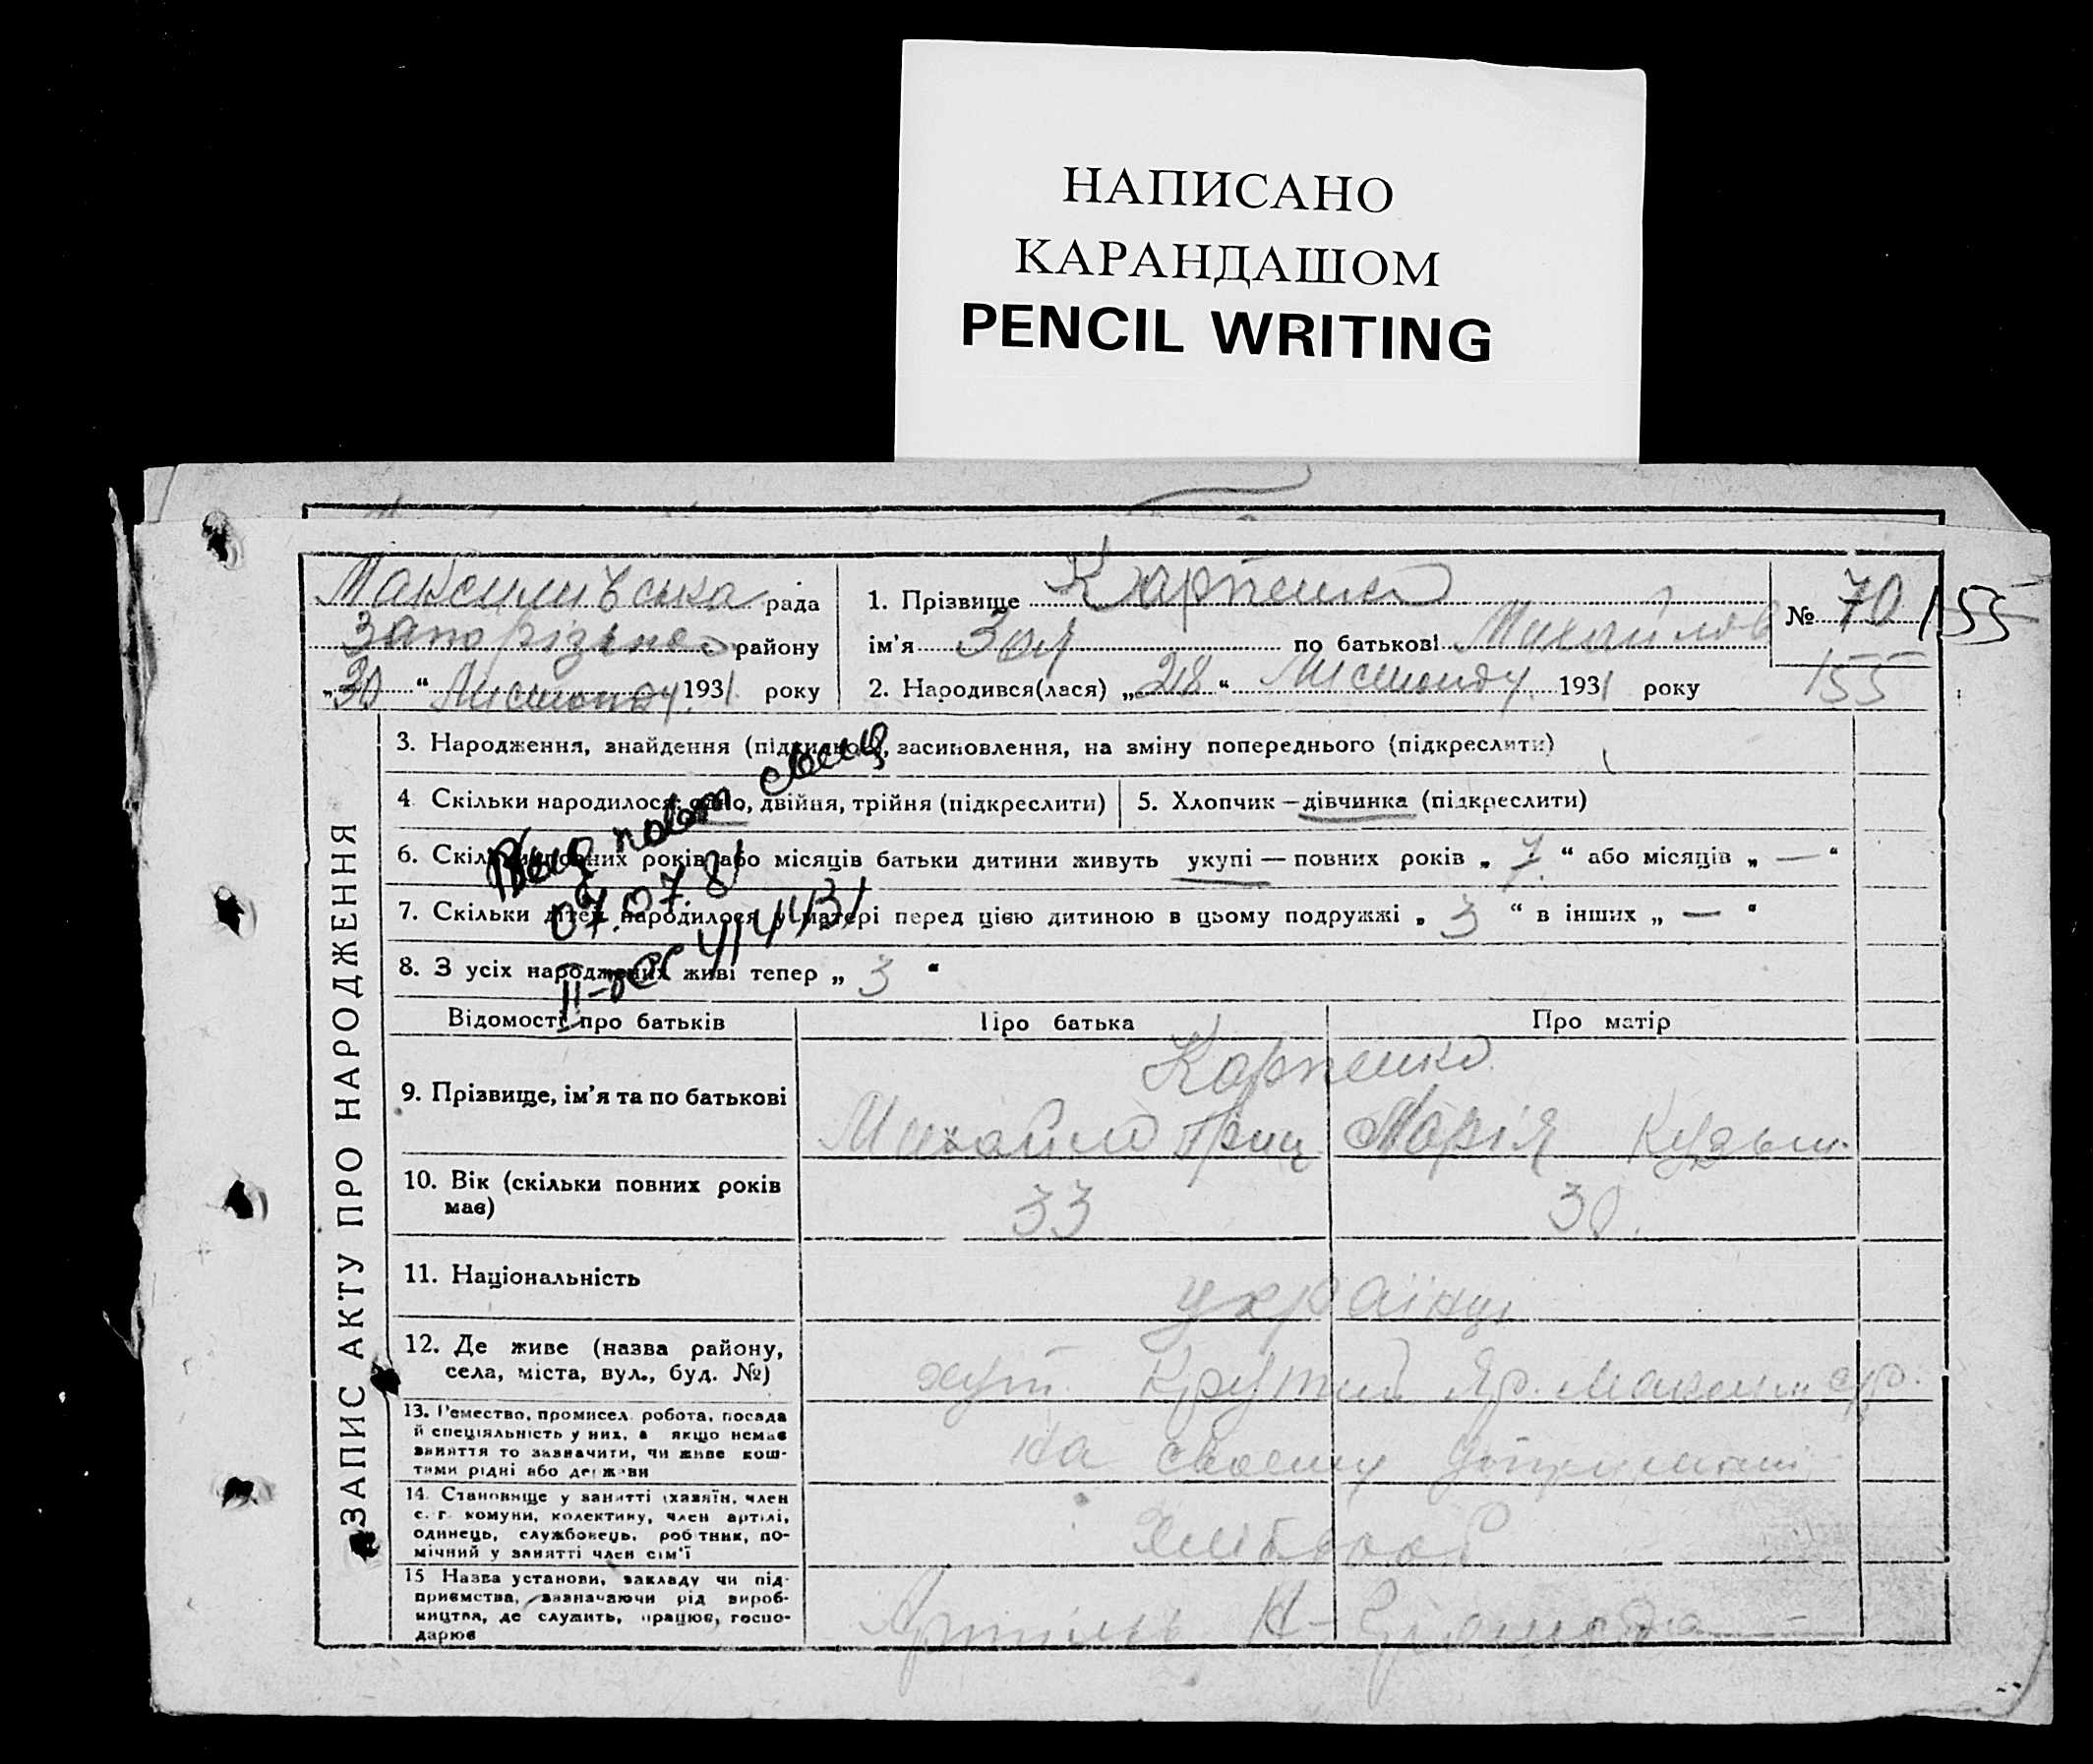 НАПИСАНО
КАРАНДАШОМ
PENCIL WRITING
ЗАПИС АКТУ ПРО НАРОДЖЕННЯ
Максимівська рада
Запорізьк району
„30“ Листопаду 1931 року
1. Прізвище Карпенко
ім'я Зоя по батькові Михайлов
2. Народився(лася) „28“ Листопаду 1931 року
№ 70/155
155
3. Народження, знайдення (підкидьок), засиновлення, на зміну попереднього (підкреслити)
4 Скільки народилося: одно, двійня, трійня (підкреслити)
5. Хлопчик — дівчинка (підкреслити)
6. Скільки повних років або місяців батьки дитини живуть укупі — повних років „7“ або місяців „—“
7. Скільки дітей народилося у матері перед цією дитиною в цьому подружжі „3“ в інших „—“
8. З усіх народжених живі тепер „3“
повт
07.07.81
Відомості про батьків
Про батька
Про матір
9. Прізвище, ім'я та по батькові
Карпенко
Михайло Григ
Марія Кузьм.
10. Вік (скільки повних років має)
33
30.
11. Національність
українці
12. Де живе (назва району,
села, міста, вул., буд. №)
хут. Крутий Яр. Максим с/р.
13. Ремество, промисел, робота, посада
й спеціяльність у них, а якщо немає
заняття то зазначити, чи живе кош-
тами рідні або держави
на своему утриманні
14. Становище у занятті (хазяїн, член
с. г. комуни, колективу, член артілі,
одинець, службовець, робітник, по-
мічний у занятті член сім'ї
Хлібороб
15 Назва установи, закладу чи під-
приємства, зазначаючи рід вироб-
ництва, де служить, працює, госпо-
дарює
Артіль Н-Громада